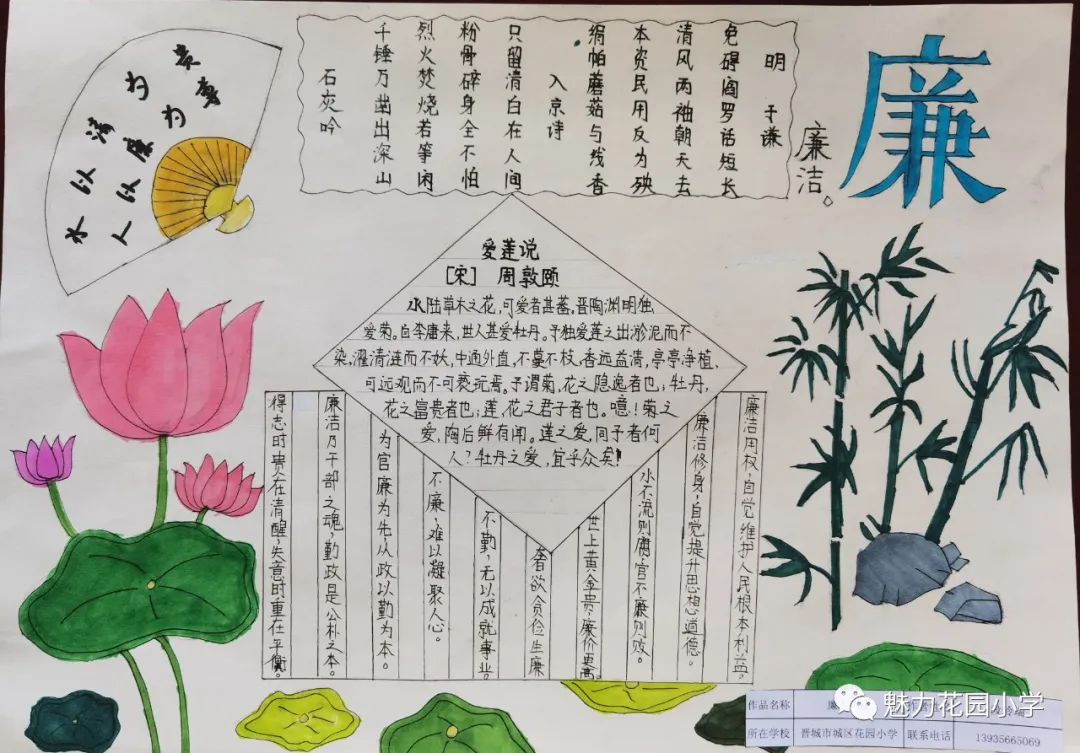 水以清为贵
人以廉为尊
石灰吟
千锤万凿出深山
烈火焚烧若等闲
粉骨碎身全不怕
只留清白在人间
入京诗
绢帕蘑菇与线香
本资民用反为殃
清风两袖朝天去
免碍阎罗话短长
明 于谦
廉洁。
廉
爱莲说
[宋] 周敦颐
水陆草木之花,可爱者甚蕃。晋陶渊明独
爱菊。自李唐来,世人甚爱牡丹。予独爱莲之出淤泥而不
染,濯清涟而不妖,中通外直,不蔓不枝,香远益清,亭亭净植,
可远观而不可亵玩焉。予谓菊,花之隐逸者也;牡丹,
花之富贵者也;莲,花之君子者也。噫!菊之
爱,陶后鲜有闻。莲之爱,同予者何
人?牡丹之爱,宜乎众矣!
得志时贵在清醒,失意时重在平衡。
廉洁乃干部之魂,勤政是公朴之本。
为官廉为先,从政以勤为本。
不廉,难以凝聚人心。
不勤,无以成就事业。
奢欲贪俭生廉
世上黄金贵,廉价更高。
水不流则腐,官不廉则败。
廉洁修身,自觉提升思想道德。
廉洁用权,自觉维护人民根本利益。
作品名称
所在学校 晋城市城区花园小学 联系电话 13935665069
魅力花园小学